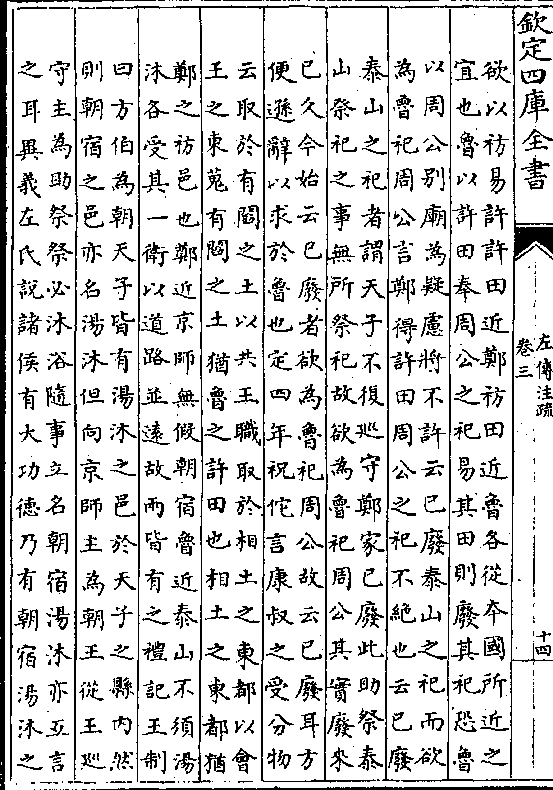 欽定四庫全書
左傳注疏
卷三
十四
欲以祊易許許田近鄭祊田近魯各從本國所近之
宜也魯以許田奉周公之祀易其田則廢其祀恐魯
以周公別廟為疑慮將不許云已廢泰山之祀而欲
為魯祀周公言鄭得許田周公之祀不絶也云已廢
泰山之祀者謂天子不復巡守鄭家已廢此助祭泰
山祭祀之事無所祭祀故欲為魯祀周公其實廢來
已久今始云已廢者欲為魯祀周公故云已廢耳方
便遜辭以求於魯也定四年祝佗言康叔之受分物
云取於有閻之土以共王職取於相土之東都以會
王之東蒐有閻之土猶魯之許田也相土之東都猶
鄭之祊邑也鄭近京師無假朝宿魯近泰山不須湯
沐各受其一衛以道路並遠故兩皆有之禮記王制
曰方伯為朝天子皆有湯沐之邑於天子之縣內然
則朝宿之邑亦名湯沐但向京師主為朝王從王巡
守主為助祭祭必沐浴隨事立名朝宿湯沐亦互言
之耳異義左氏說諸侯有大功德乃有朝宿湯沐之